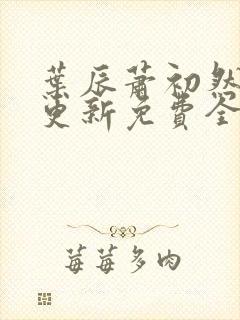 葉辰蕭初然
更新免費全
莓莓多肉